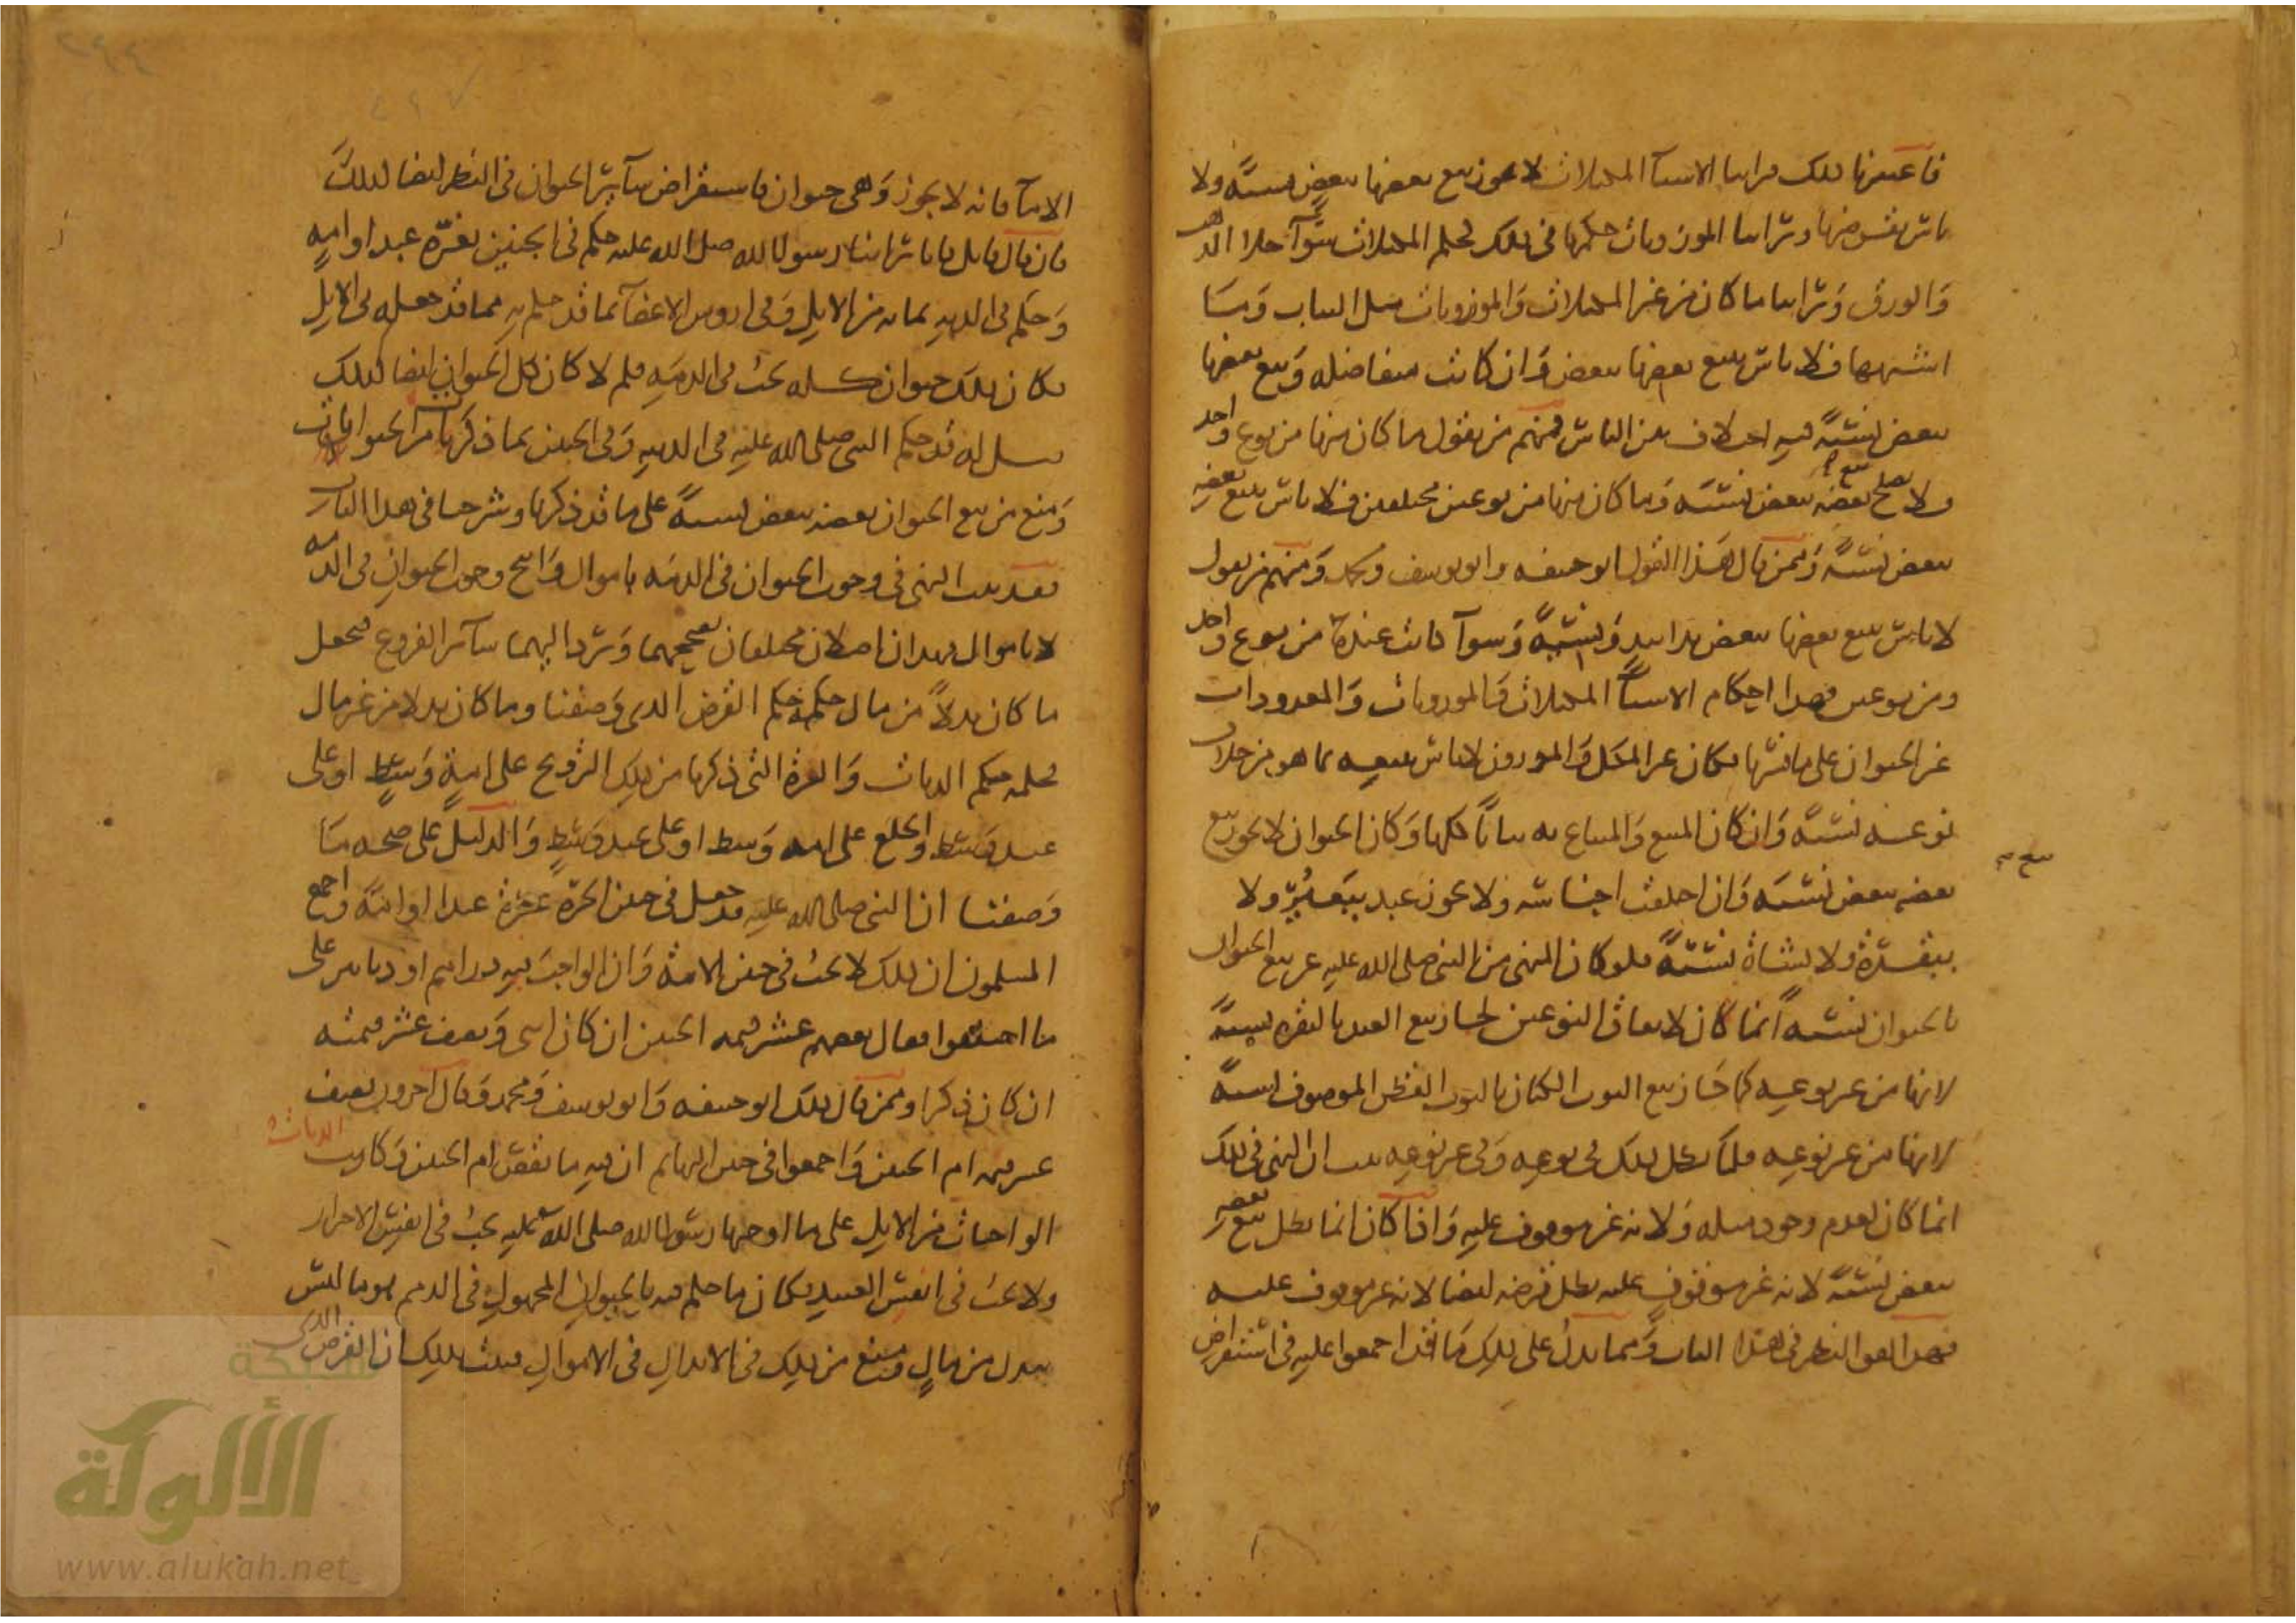 فاعتبرنا ذلك فراينا الاشيآ المكيلات لا يجوز بيع بعضها ببعض نسيئةً ولا
باس بقرضها وراينا الموزونات حكمها في ذلك كحكم المكيلات سوآء خلا الذهب
وَالورق وَراينا ما كان من غير المكيلات وَالموزونات مثل الثياب وَما
اشبهها فلا باس ببيع بعضها ببعض وَان كانت متفاضلة وَبيع بعضها
ببعض نسيئةً فيه اختلاف بين الناس فمنهم من يقول ما كان منها من نوع واحد
ولا يصلح بيع بعضه ببعض نسيئة وَما كان منها من نوعين مختلفين فلا باس ببيع بعضه
ببعض نسيئةً وَممن قال هذا القول ابو حنيفه وابو يوسف ومحمد وَمنهم من يقول
لا باس ببيع بعضها ببعض يدا بيد وَنسيئةً وَسوآ كانت عنده من نوع واحد
ومن نوعين فهذا احكام الاشيآ المكيلات وَالموزونات وَالمعدودات
غير الحيوان على ما فسرنا فكان غير المكيل وَالموزون لا باس ببيعه بما هو من خلاف
نوعه نسيئة وَان كان المبيع وَالمبتاع به ثيابًا كلها وَكان الحيوان لا يجوز بيع
بعضه ببعض نسيئة وَان اختلفت اجناسه ولا يجوز بيع عبد ببعير ولا
ببقرة ولا بشاة نسيئةً فلو كان النهي من النبي صلى الله عليه عن بيع الحيوان
بالحيوان نسيئةً انما كان لاتفاق النوعين لجاز بيع العبد بالبقره نسيئةً
لانها من غير نوعه كما جَاز بيع الثوب الكتان بالثوب القطن الموصوف نسيئةً
لانها من غير نوعه فلما بطل ذلك في نوعه وَفي غير نوعه ثبت ان النهي في ذلك
انما كان لعدم وجود مثله وَلانه غير موقوف عليه وَاذا كان انما بطل بيع بعضه
ببعض نسيئةً لانه غير موقوفٍ عليه بطل قرضه ايضا لانه غير موقوف عليه
فهذا هو النظر في هذا الباب وَمما يدل على ذلك مَا قد اجمعوا عليه في استقراض
الامآ فانه لا يجوز وَهي حيوان فاستقراض سآئر الحيوان في النظر ايضا كذلك
فان قال قائل فانا راينا رسول الله صلى الله عليه حكم في الجنين بغرّة عبد او امةٍ
وَحكم في الديه بمايه من الابل وَفي اروش الاعضآ بما قد حكم به مما قد جعله في الابل
فكان ذلك حيوان كله يجب في الذمه فلم لا كان كل الحيوان ايضا كذلك
قيل له قد حكم النبي صلى الله عليه في الديه وَفي الجنين بما ذكرنا من الحيوان
وَمنع من بيع الحيوان بعضه ببعض نسيئةً على ما قد ذكرنا وشرحنا في هذا الباب
فقد ثبت النهي في وجوب الحيوان في الذمه باموال وَابيح وجوب الحيوان في الذمه
لا باموال فهذان اصلان مختلفان نصححهما وَنرد اليهما سآئر الفروع فنجعل
ما كان بدلاً من مال حكمه حكم القرض الذي وَصفنا وما كان بدلا من غير مال
فحكمه حكم الديات وَالغرة التي ذكرنا من ذلك التزويج على امةٍ وَسطٍ او على
عبد وَسَط والخلع على امه وَسط او على عبد وَسَطٍ وَالدليل على صحه مَا
وَصفنا ان النبي صلى الله عليه قد جعل في جنين الحرّة غرة عبدا او امة واجمع
المسلمون ان ذلك لا يجب في جنين الامة وَان الواجب فيه دراهم او دنانير على
ما اختلفوا فقال بعضهم عشر قيمه الجنين ان كان انثى وَنصف عشر قيمته
ان كان ذكرا وممن قال ذلك ابو حنيفه وَابو يوسف وَمحمد وَقال اخرون نصف
عشر قيمه ام الجنين وَاجمعوا في جنين البهائم ان فيه ما نقص ام الجنين وَكانت الديات
الواجبات من الابل على ما اوجبها رسول الله صلى الله عليه يجب في انفس الاحرار
ولا يجب في انفس العبيد فكان ما حكم فيه بالحيوان المجهول في الذمم هو ما ليس
ببدل من مالٍ وَمنع من ذلك في الابدال في الاموال فثبت بذلك ان القرض الذي
شبكة
الألوكة
www.alukah.net